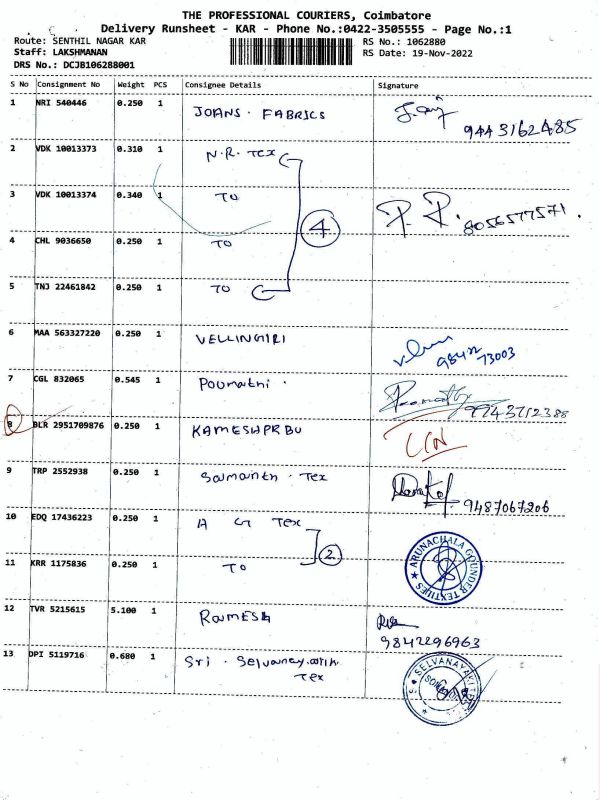 THE PROFESSIONAL COURIERS, Coimbatore
Delivery Runsheet - KAR - Phone No.:0422-3505555 - Page No.:1
Route: SENTHIL NAGAR KAR
Staff: LAKSHMANAN
DRS No.: DCJB106288001
RS No.: 1062880
RS Date: 19-Nov-2022
S No Consignment No Weight PCS Consignee Details Signature
1 NRI 540446 0.250 1 JOANS. FABRICS
9443162485
2 VDK 10013373 0.310 1 N.R. Tex
3 VDK 10013374 0.340 1 TO
4
8056577571.
4 CHL 9036650 0.250 1 TO
5 TNJ 22461842 0.250 1 TO
6 MAA 563327220 0.250 1 VELLINGIRI
98422 73003
7 CGL 832065 0.545 1 Poumathi.
9943712388
8 BLR 2951709876 0.250 1 KAMESHPRBU
9 TRP 2552938 0.250 1 Tex
9487067206
10 EDQ 17436223 0.250 1 A G Tex
2
ARUNACHALA GOUNDER TEXTILES
11 KRR 1175836 0.250 1 TO
12 TVR 5215615 5.100 1 RAMESH
9842296963
13 DPI 5119716 0.680 1 Sri.
Tex